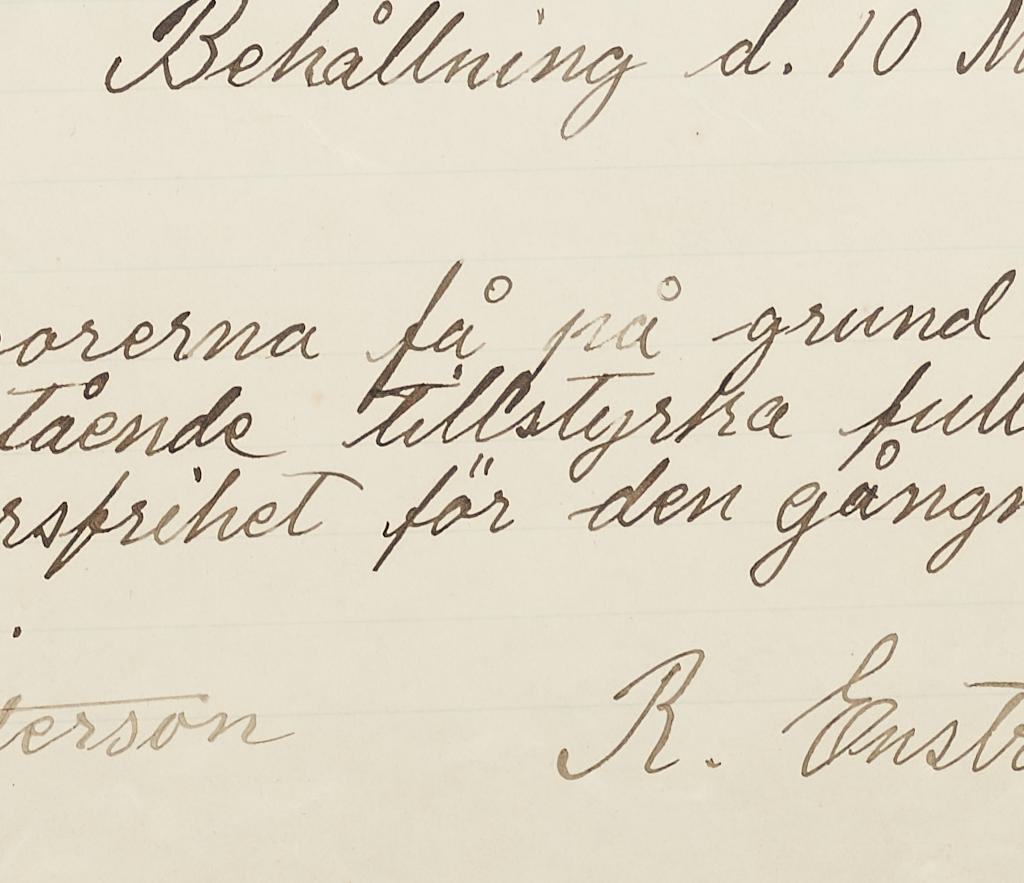 Behållning d. 10 M
orerna få på grund
tående tillstyrka full
rsfrihet för den gångn
.
terson R. Enstr